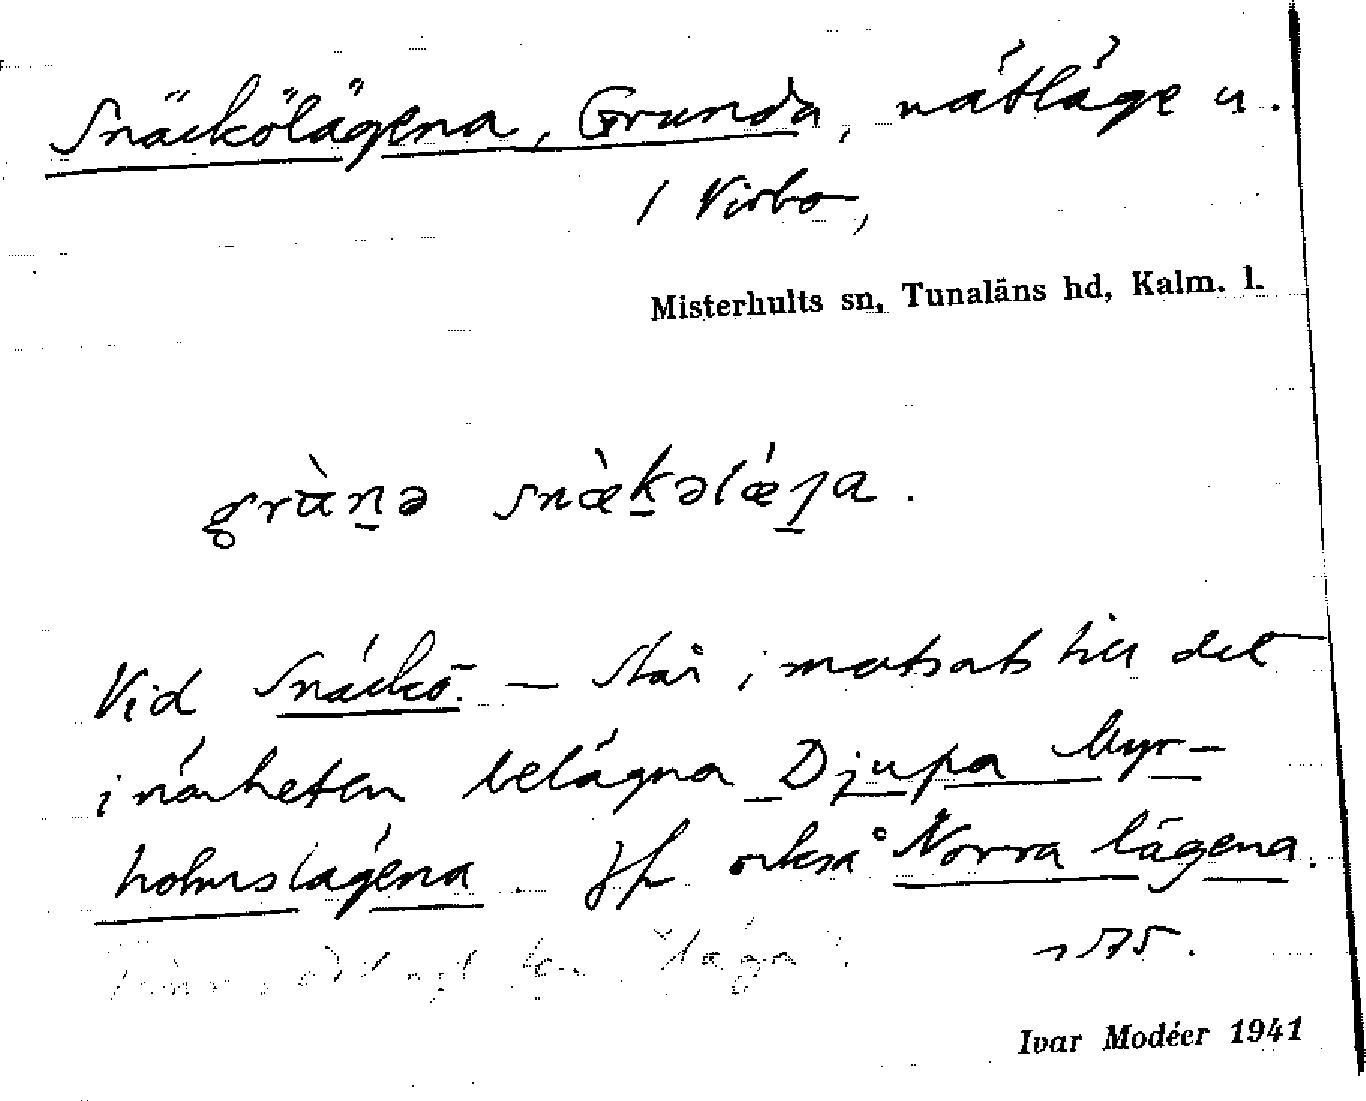 Snäckölägena, Grunda, nätläge u.
/ Virbo,
Misterhults sn, Tunaläns hd, Kalm. l.
grùn̲ə snæ̀k̲əlǽn̲a.
Vid Snäckö. — Står i motsats till det
i närheten belägna Djupa Myr-
holmslägena. Jfr också Norra lägena.
"läga".
Ivar Modéer 1941